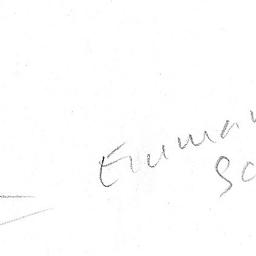 Emman
So